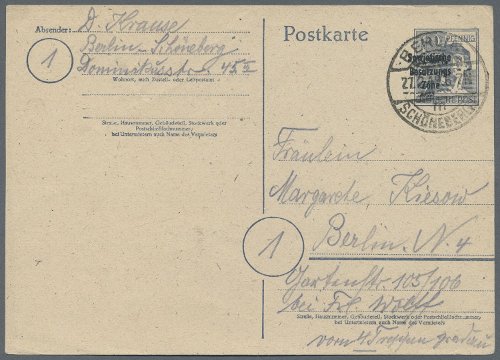 Absender: D. Krause
Berlin-Schöneberg
1
Dominikusstr. 45 II
Wohnort, auch Zustell- oder Leitpostamt
Straße, Hausnummer, Gebäudeteil, Stockwerk oder
Postschließfachnummer,
bei Untermietern auch Name des Vermieters
Postkarte
PFENNIG
BERLIN
Sowjetische
Besatzungs
Zone
SCHÖNEBERG
Fräulein
Margarete Kiesow
1
Berlin N 4
Gartenstr. 105/106
bei Frl. Wolff
Straße, Hausnummer, Gebäudeteil, Stockwerk oder Postschließfachnummer,
bei Untermietern auch Name des Vermieters
vom 4 Treppen gradeü